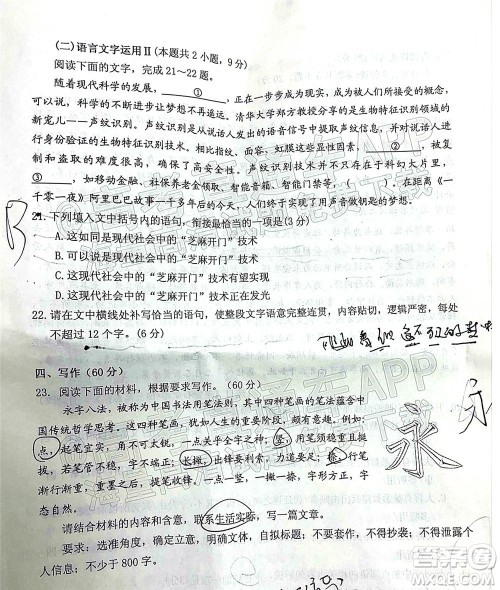 (二)语言文字运用Ⅱ(本题共2小题,9分)
阅读下面的文字,完成21～22题。
随着现代科学的发展,  ①  ,正在一步步成为现实,成为被人们所接受的概念,
可以说,科学的不断进步让梦想不再遥远。清华大学郑方教授分享的是生物特征识别领域的
新宠儿—声纹识别。声纹识别是从说话人发出的语音信号中提取声纹信息,并对说话人进
行身份验证的生物特征识别技术。相比指纹、面容、虹膜这些因素,  ②  ,被复
制和盗取的难度很高,(  )。声纹识别技术并不只存在于科幻大片里,
  ③  ,如移动金融、社保养老金领取、智能语音、智能门禁……可以说,在距《一
千零一夜》阿里巴巴故事一千多年后的今天,人们终于实现了用声音做钥匙的梦想。
B
21.下列填入文中括号内的语句,衔接最恰当的一项是(3分)
A.这如同是现代社会中的“芝麻开门”技术
B.可以说是现代社会中的“芝麻开门”技术
C.这现代社会中的“芝麻开门”技术有望实现
D.这现代社会中的“芝麻开门”技术正在发光
22.请在文中横线处补写恰当的语句,使整段文字语意完整连贯,内容贴切,逻辑严密,每处
不超过12个字。(6分)
四、写作(60分)
23.阅读下面的材料,根据要求写作。(60分)
永字八法,被称为中国书法用笔法则,其中四种笔画的笔法蕴含中
国传统哲学思考。这四种笔画,犹如人生的重要阶段,或奋斗的不同时期:
点,起笔宜实,角不可太锐,一点关乎全字之安;竖,用笔须稳重且
拔,若笔管不稳,字不端正;长撇,出锋要利索,力道要足;捺,行笔
渐行渐重,重按之后提笔出锋。一点一竖,一撇一捺,字形方正,字
态自然。
永
永
请结合材料的内容和含意,联系生活实际,写一篇文章。
要求:选准角度,确定立意,明确文体,自拟标题;不要套作,不得抄袭;不得泄露个
人信息;不少于800字。
作业帮
www.zuoyebang.com